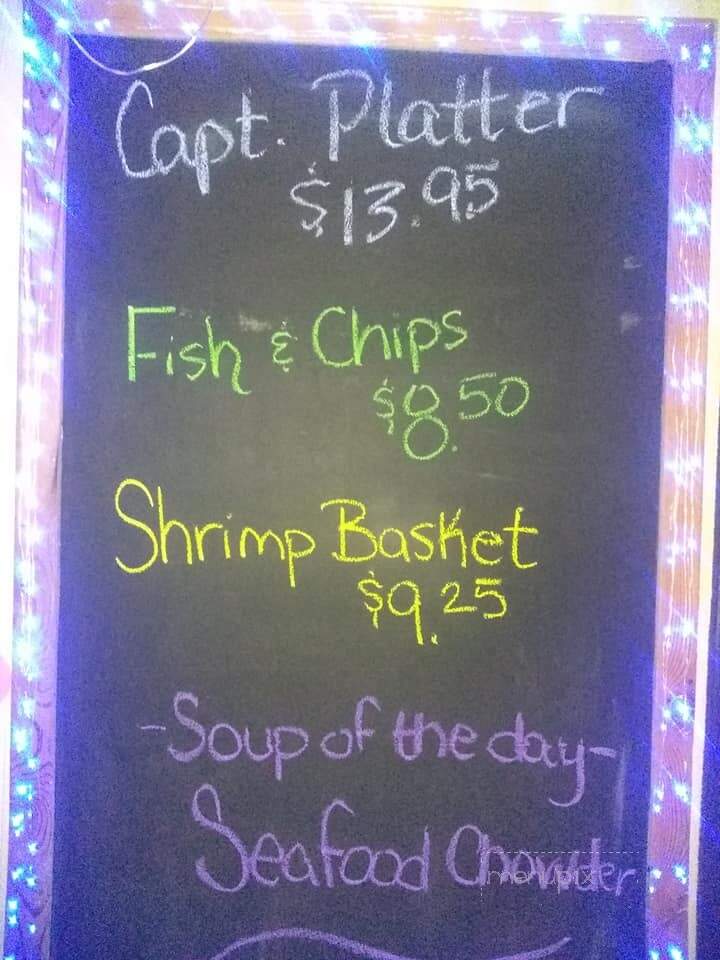 Capt. Platter
$13.95
Fish & Chips
$8.50
Shrimp Basket
$9.25
-Soup of the day-
Seafood Chowder
menupix